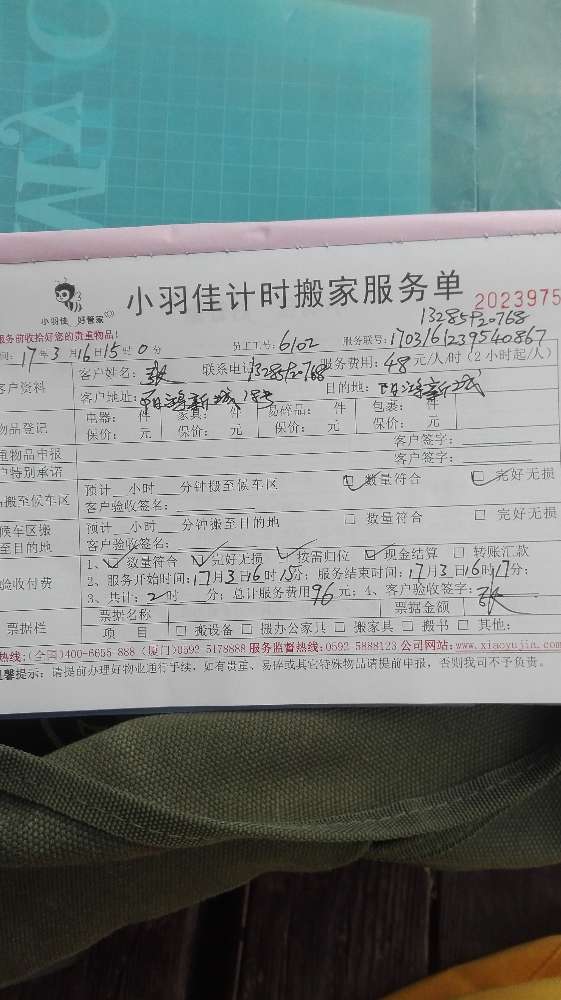 小羽佳 好管家
小羽佳计时搬家服务单 2023975
服务前收拾好您的贵重物品!
13285920768
间: 17年3月16日15时0分 员工工号: 6102 服务联号: 1703161239540867
客户资料 客户姓名: 张 联系电话13285920768 服务费用: 48元/人/时 (2小时起/人)
客户地址: 新城 目的地: 新城
物品登记 电器: 件 家具: 件 易碎品: 件 包裹: 件
保价: 元 保价: 元 保价: 元 保价: 元
重物品申报 客户签字:
户特别承诺 客户签字:
品搬至候车区 预计__小时__分钟搬至候车区 数量符合 完好无损
客户验收签名:
候车区搬至目的地 预计__小时__分钟搬至目的地 数量符合 完好无损
客户验收签名:
验收付费 1、数量符合 完好无损 按需归位 现金结算 转账汇款
2、服务开始时间:17月3日16时15分; 服务结束时间:17月3日16时17分;
3、共计: 2时__分; 总计服务费用96元; 4、客户验收签字: 张
票据栏 票据名称 票据金额
项 目 搬设备 搬办公家具 搬家具 搬书 其他:
热线:(全国)400-6655-888 (厦门)0592 5178888 服务监督热线:0592 5888123 公司网站:www.xiaoyujia.com
温馨提示: 请提前办理好物业通行手续, 如有贵重、易碎或其它特殊物品请提前申报, 否则我司不予负责。